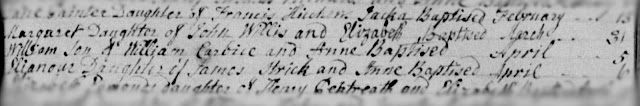 Daughter of Francis Hitchens Jacka Baptised February 13
Margaret Daughter of John Willis and Elizabeth Baptised March 31
William Son of William Carbice and Anne Baptised April 5
Elianour Daughter of James Strick and Anne Baptised April 6
daughter of Henry Gentreath and